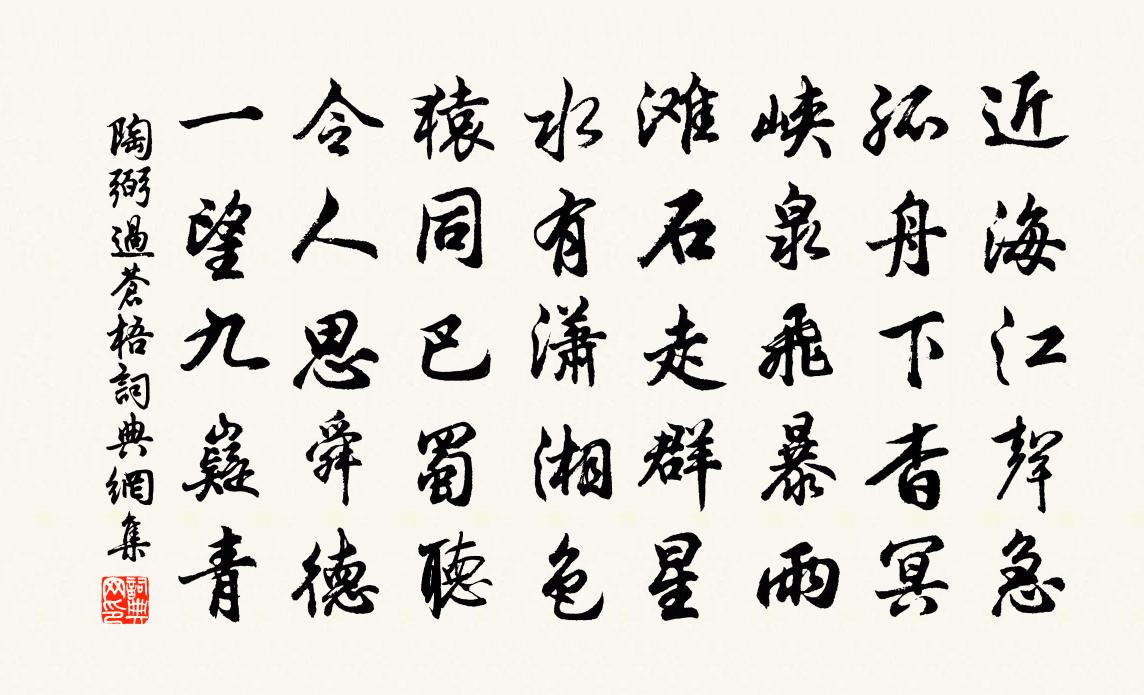 近海江声急
孤舟下杳冥
峡泉飛暴雨
滩石走群星
水有瀟湘色
猿同巴蜀聽
令人思舜德
一望九嶷青
陶弼過蒼梧詞典網集
詞典网印